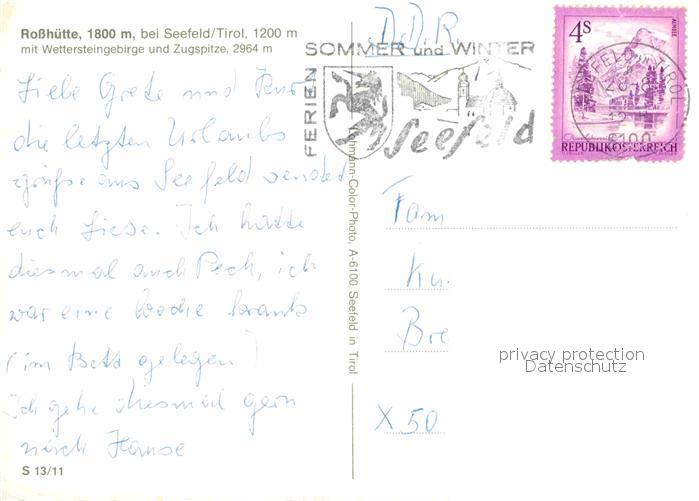 Roßhütte, 1800 m, bei Seefeld/Tirol, 1200 m
mit Wettersteingebirge und Zugspitze, 2964 m
Liebe Grete und Kurt
die letzten Urlaubs
grüße aus Seefeld sendet
euch Liese. Ich hatte
diesmal auch Pech, ich
war eine Woche krank
(im Bett gelegen)
Ich gehe diesmal gern
nach Hause
S 13/11
D.D.R.
FERIEN
SOMMER und WINTER
Seefeld
4S
ALMSEE
REPUBLIK ÖSTERREICH
SEEFELD IN TIROL
6100
-Color-Photo, A-6100 Seefeld in Tirol
Fam
Ku.
Bre
X 50
privacy protection
Datenschutz